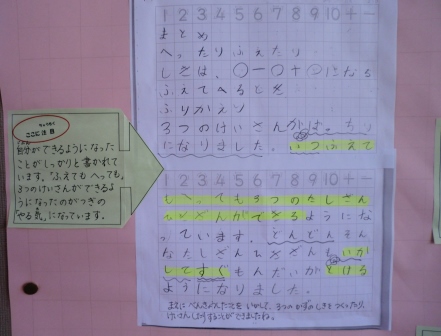 ちゅうもく
ここに注目
自分ができるようになった
ことがしっかりと書かれて
います。「ふえても へっても、
3つのけいさんができるよ
うになったのがつぎの
「やる気」になっています。
1 2 3 4 5 6 7 8 9 10 + －
まとめ
へったりふえたり
しきは、○－○＋○になる
ふえてへるとき
ふりかえり
3つのけいさんが
になりました。いつふえて
1 2 3 4 5 6 7 8 9 10 + －
もへっても3つのたしざん
ひきざんができるようにな
っています。どんどんそん
なたしざんひきざんもいか
してすぐもんだいがとける
ようになりました。
まえにべんきょうしたことをいかして、3つのかずのしきをつくったり、
けいさんしたりすることができましたね。